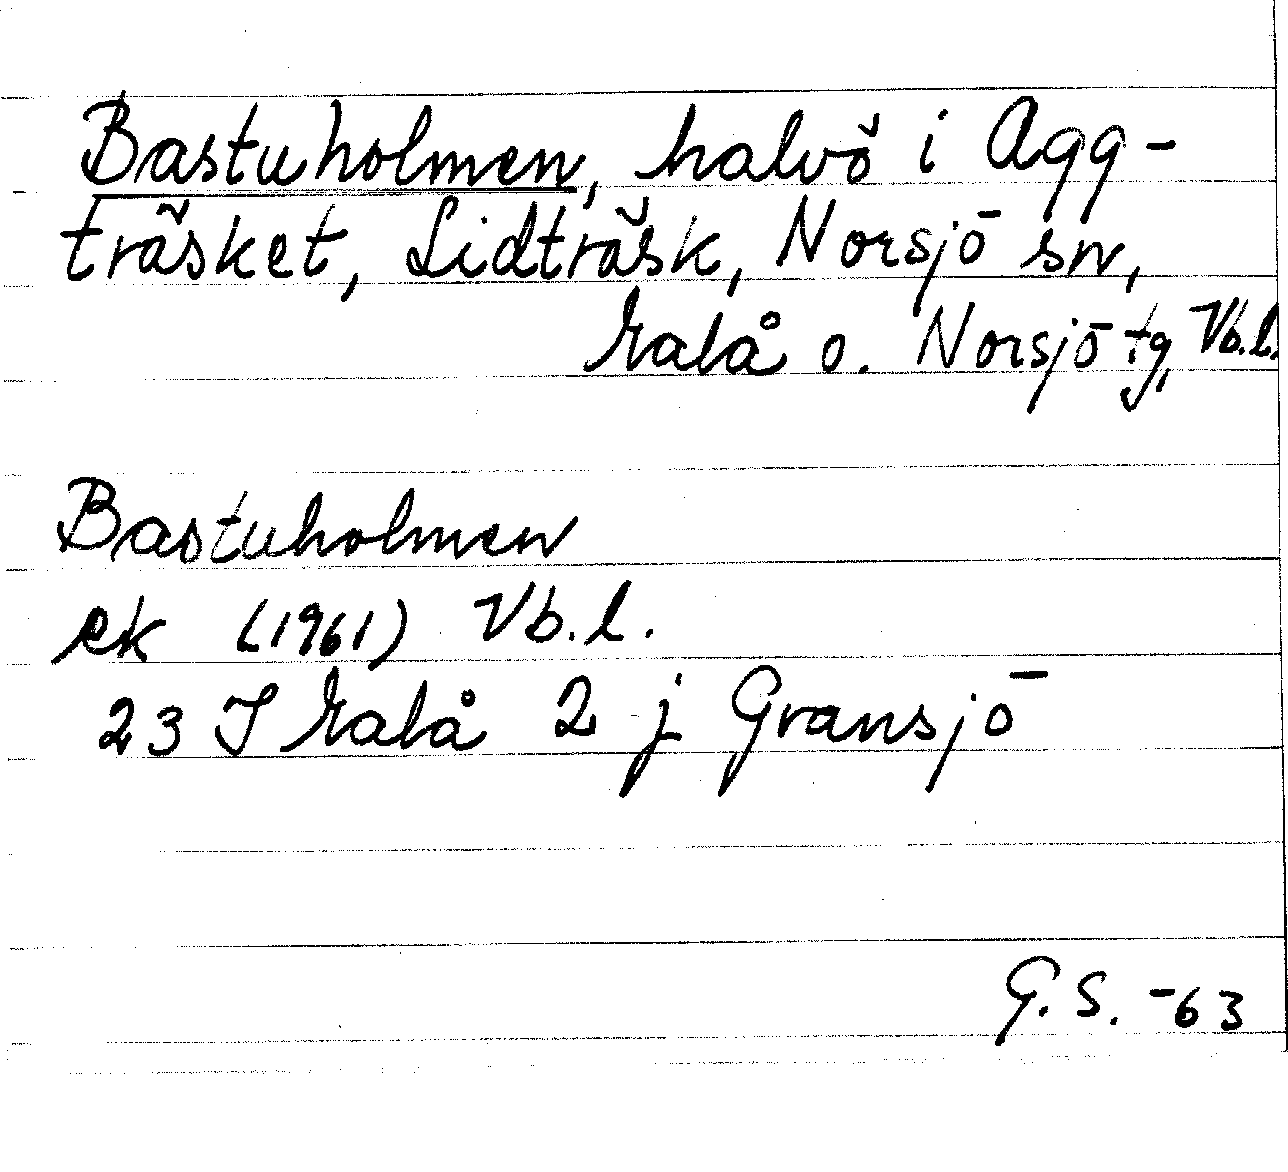 Bastuholmen, halvö i Agg-
träsket, Lidträsk, Norsjö sn,
Malå o. Norsjö tg, Vb.l.
Bastuholmen
ek (1961) Vb.l.
23 I Malå 2 j Gransjö
G.S. -63